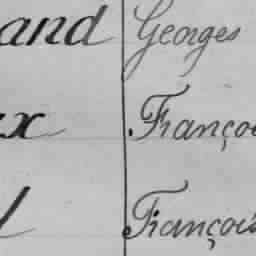 and Georges
x Franço
l Françoi